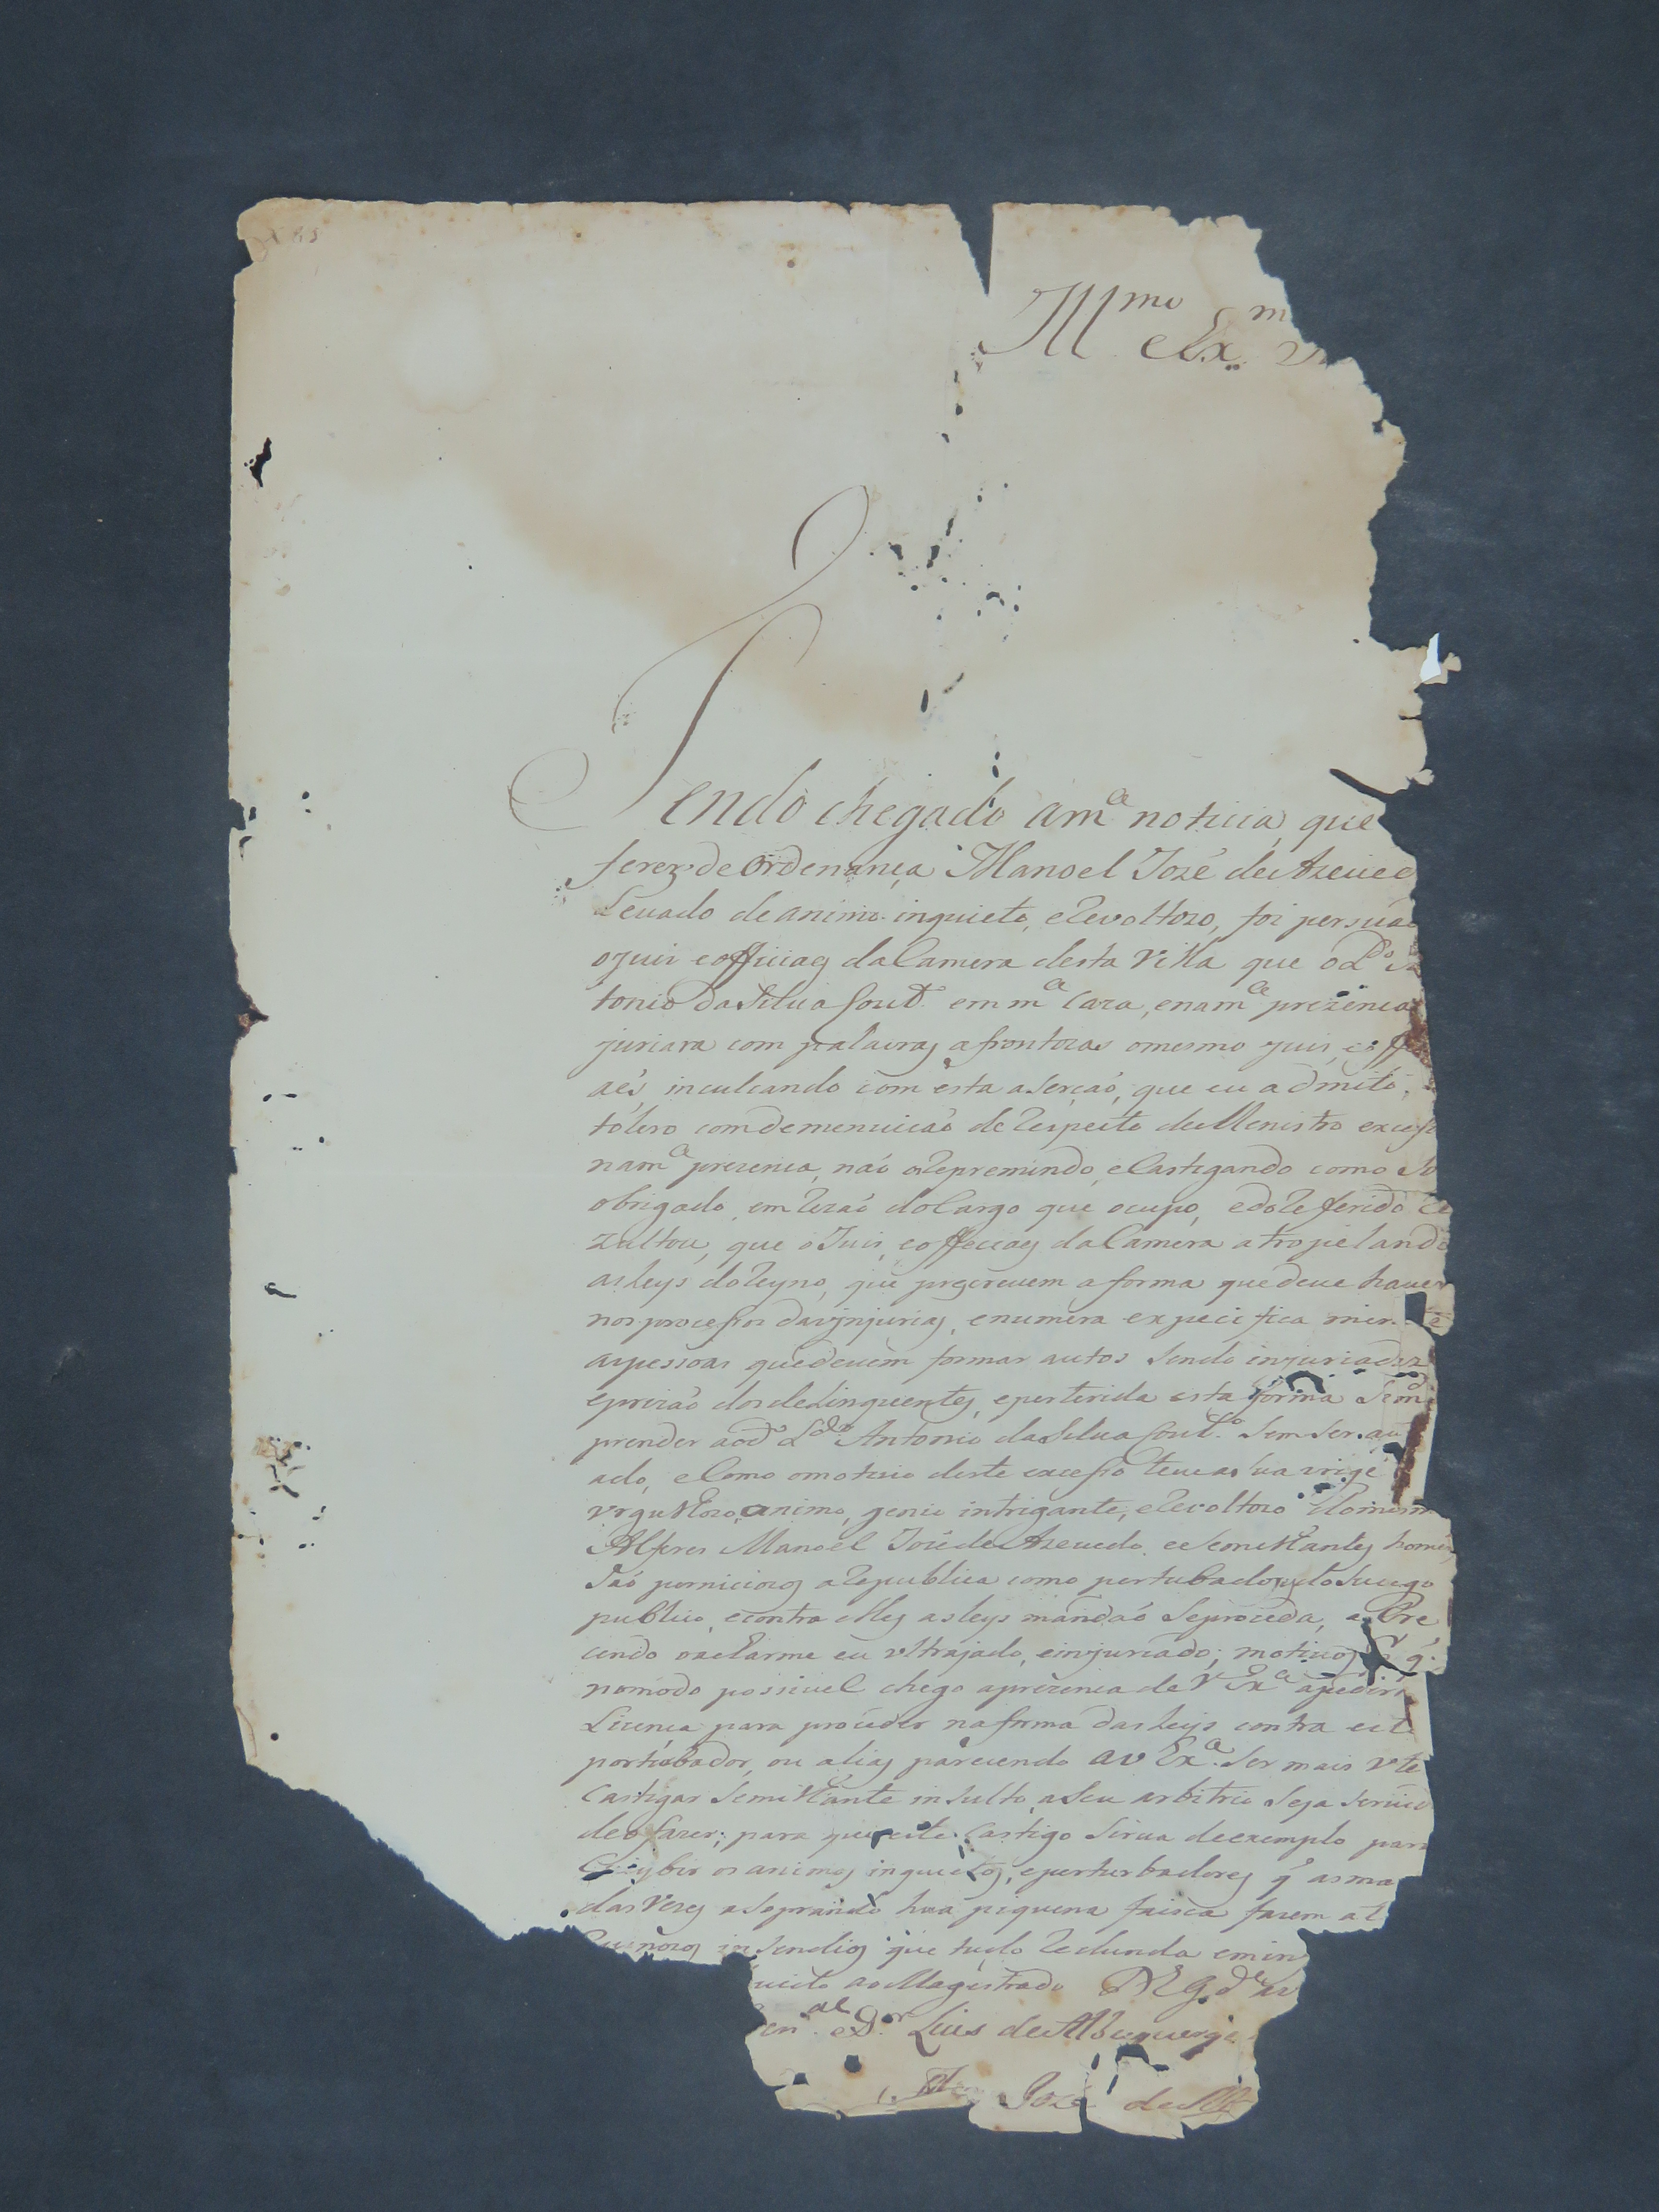 Ill.mo e Ex.m
Tendo chegado a m.ce noticia, que
ferez de Ordenança Manoel Jozé de Azeued
Leuado de animo inquieto, e Revoltozo, foi persuad
o Juis e officiaes da Camera desta Villa que o L.do
tonio da Silua Cout.o em m.ce Caza, e na m.ce prezença
juriara com palauras afrontozas o mesmo Juis, e off
aés, inculcando com esta aserçaó, que eu admito,
tólero com demenuicaó de Respeito de Menistro
na m.ce prezenca, naó o Repremindo, e Castigando como
obrigado, em Rezaó do Cargo que ocupo, e do Referido
zultou, que o Juis, e offeciaes da Camera atropelando
as leys do Reyno, que precreuem a forma que deue hauer
nos procesos das injurias, e numera expecifica
as pessoas que deuem formar autos sendo injuriadas
e prizaó dos delinquentes, e perterida esta forma
prender ao d.o L.do Antonio da Silua Cout.o sem ser
ado, e Como o motiuo deste excesso teue a sua orige
orgulhozo animo, genio intrigante, e Revoltozo do mesm
Alferes Manoel Jozé de Azeuedo, e semilhantes home
saó perniciozos a Republica como pertubadores do Sucego
publico, e contra elles as leys mandaó se proceda, e
cendo axarme eu ultrajado, e injuriado; motiuos q
no modo possiuel chego a prezenca de V. Ex.ca a pedir
Licenca para proceder na forma das leys contra este
portubador, ou alias parecendo a V Ex.ca ser mais
Castigar semilhante insulto a seu arbitrio seja seruid
de o fazer; para que este Castigo sirua de exemplo para
os animos inquietos, e perturbadores q as ma
das vezes asoprando hua piquena faisca fazem
insendios que tudo Redunda em
ao Magistrado
en.al e S.or Luis de Albuquerq
Jozé de